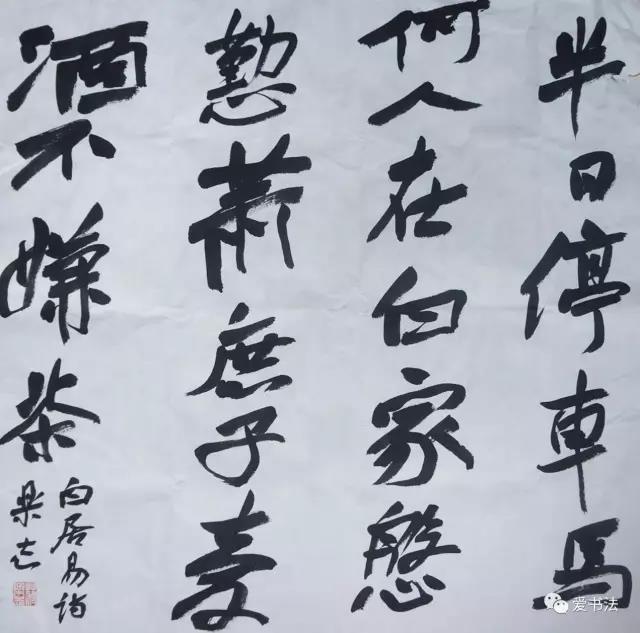 半日停車馬
何人在白家慇
懃蕭庶子愛
酒不嫌茶
白居易诗
爱书法